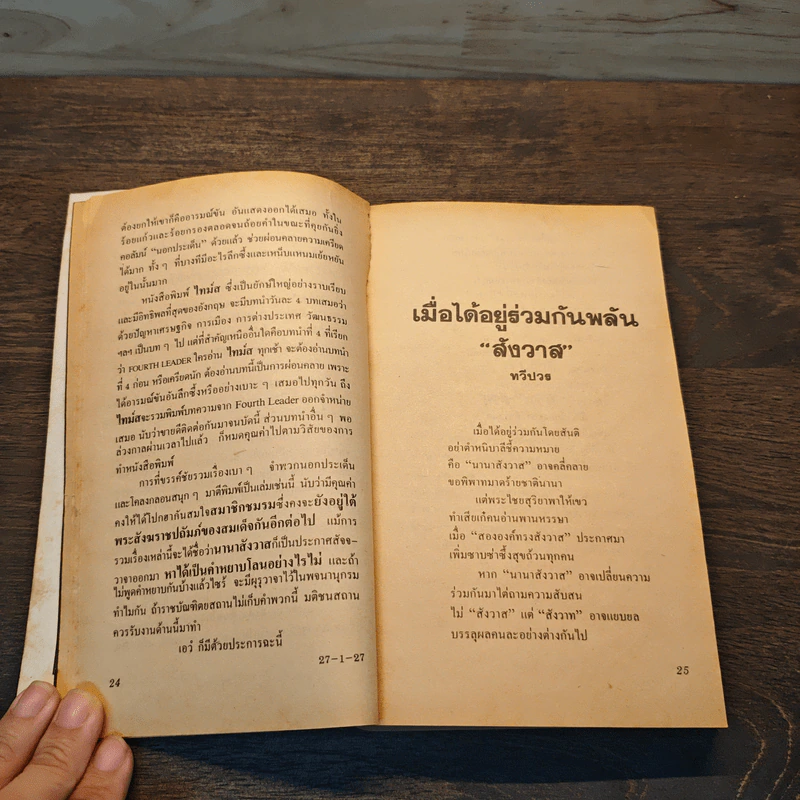 ต้องยกให้เขาก็คืออารมณ์ขัน อันแสดงออกได้เสมอ ทั้งใน
ร้อยแก้วและร้อยกรองตลอดจนถ้อยคำในขณะที่คุยกันยิ่ง
คอลัมน์ “นอกประเด็น” ด้วยแล้ว ช่วยผ่อนคลายความเครียด
ได้มาก ทั้ง ๆ ที่บางทีมีอะไรลึกซึ้งและเหน็บแหนมเย้ยหยัน
อยู่ในนั้นมาก
หนังสือพิมพ์ ไทม์ส ซึ่งเป็นยักษ์ใหญ่อย่างราบเรียบ
และมีอิทธิพลที่สุดของอังกฤษ จะมีบทนำวันละ 4 บทเสมอว่า
ด้วยปัญหาเศรษฐกิจ การเมือง การต่างประเทศ วัฒนธรรม
ฯลฯ เป็นบท ๆ ไป แต่ที่สำคัญเหนืออื่นใดคือบทนำที่ 4 ที่เรียก
ว่า FOURTH LEADER ใครอ่าน ไทม์ส ทุกเช้า จะต้องอ่านบทนำ
ที่ 4 ก่อน หรือเครียดนัก ต้องอ่านบทนี้เป็นการผ่อนคลาย เพราะ
ได้อารมณ์ขันอันลึกซึ้งหรืออย่างเบาะ ๆ เสมอไปทุกวัน ถึง
ไทม์สจะรวมพิมพ์บทความจาก Fourth Leader ออกจำหน่าย
เสมอ นับว่าขายดีติดต่อกันมาจนบัดนี้ ส่วนบทนำอื่น ๆ พอ
ล่วงกาลผ่านเวลาไปแล้ว ก็หมดคุณค่าไปตามวิสัยของการ
ทำหนังสือพิมพ์
การที่ขรรค์ชัยรวมเรื่องเบา ๆ จำพวกนอกประเด็น
และโคลงกลอนสนุก ๆ มาตีพิมพ์เป็นเล่มเช่นนี้ นับว่ามีคุณค่า
คงให้ได้ไปกฮากันสมใจสมาชิกชมรมซึ่งคงจะยังอยู่ใต้
พระสังฆราชปถัมภ์ของสมเด็จกันอีกต่อไป แม้การ
รวมเรื่องเหล่านี้จะได้ชื่อว่านานาสังวาสก็เป็นประกาศสัจจ-
วาจาออกมา หาได้เป็นคำหยาบโลนอย่างไรไม่ และถ้า
ไม่พูดคำหยาบกันบ้างแล้วไซร้ จะมีผุรุวาจาไว้ในพจนานุกรม
ทำไมกัน ถ้าราชบัณฑิตยสถานไม่เก็บคำพวกนี้ มติชนสถาน
ควรรับงานด้านนี้มาทำ
เอวํ ก็มีด้วยประการฉะนี้
27-1-27
24
เมื่อได้อยู่ร่วมกันพลัน
“สังวาส”
ทวีปวร
เมื่อได้อยู่ร่วมกันโดยสันติ
อย่าตำหนิบาลีชี้ความหมาย
คือ “นานาสังวาส” อาจคลี่คลาย
ขอพิพาทมาดร้ายชาตินานา
แต่พระไชยสุริยาพาให้เขว
ทำเสียเก๋คนอ่านพานหรรษา
เมื่อ “สององค์ทรงสังวาส” ประกาศมา
เพิ่มซาบซ่าซึ้งสุขถ้วนทุกคน
หาก “นานาสังวาส” อาจเปลี่ยนความ
ร่วมกันมาไต่ถามความสับสน
ไม่ “สังวาส” แต่ “สังวาท” อาจแยบยล
บรรลุผลคนละอย่างต่างกันไป
25